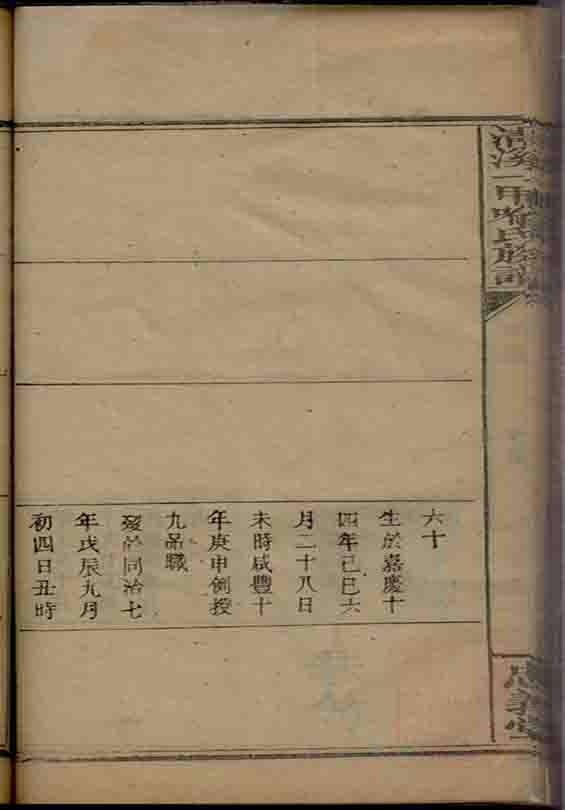 六十
生於嘉慶十
四年己巳六
月二十八日
未時咸豐十
年庚申例授
九品職
歿於同治七
年戊辰九月
初四日丑時